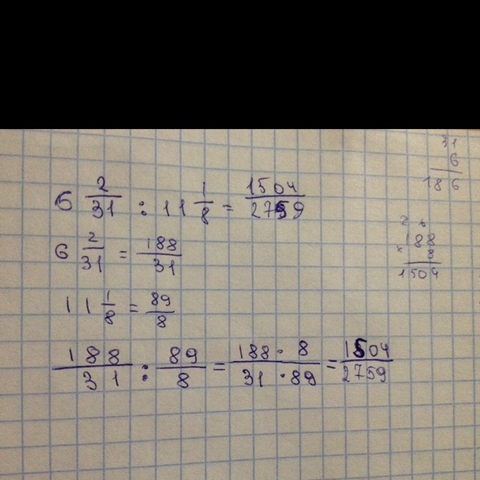 6 2/31 : 11 1/8 = 1504/2759
6 2/31 = 188/31
11 1/8 = 89/8
188/31 : 89/8 = 188 · 8/31 · 89 = 1504/2759
31
6
186
2 6
188
× 8
1504